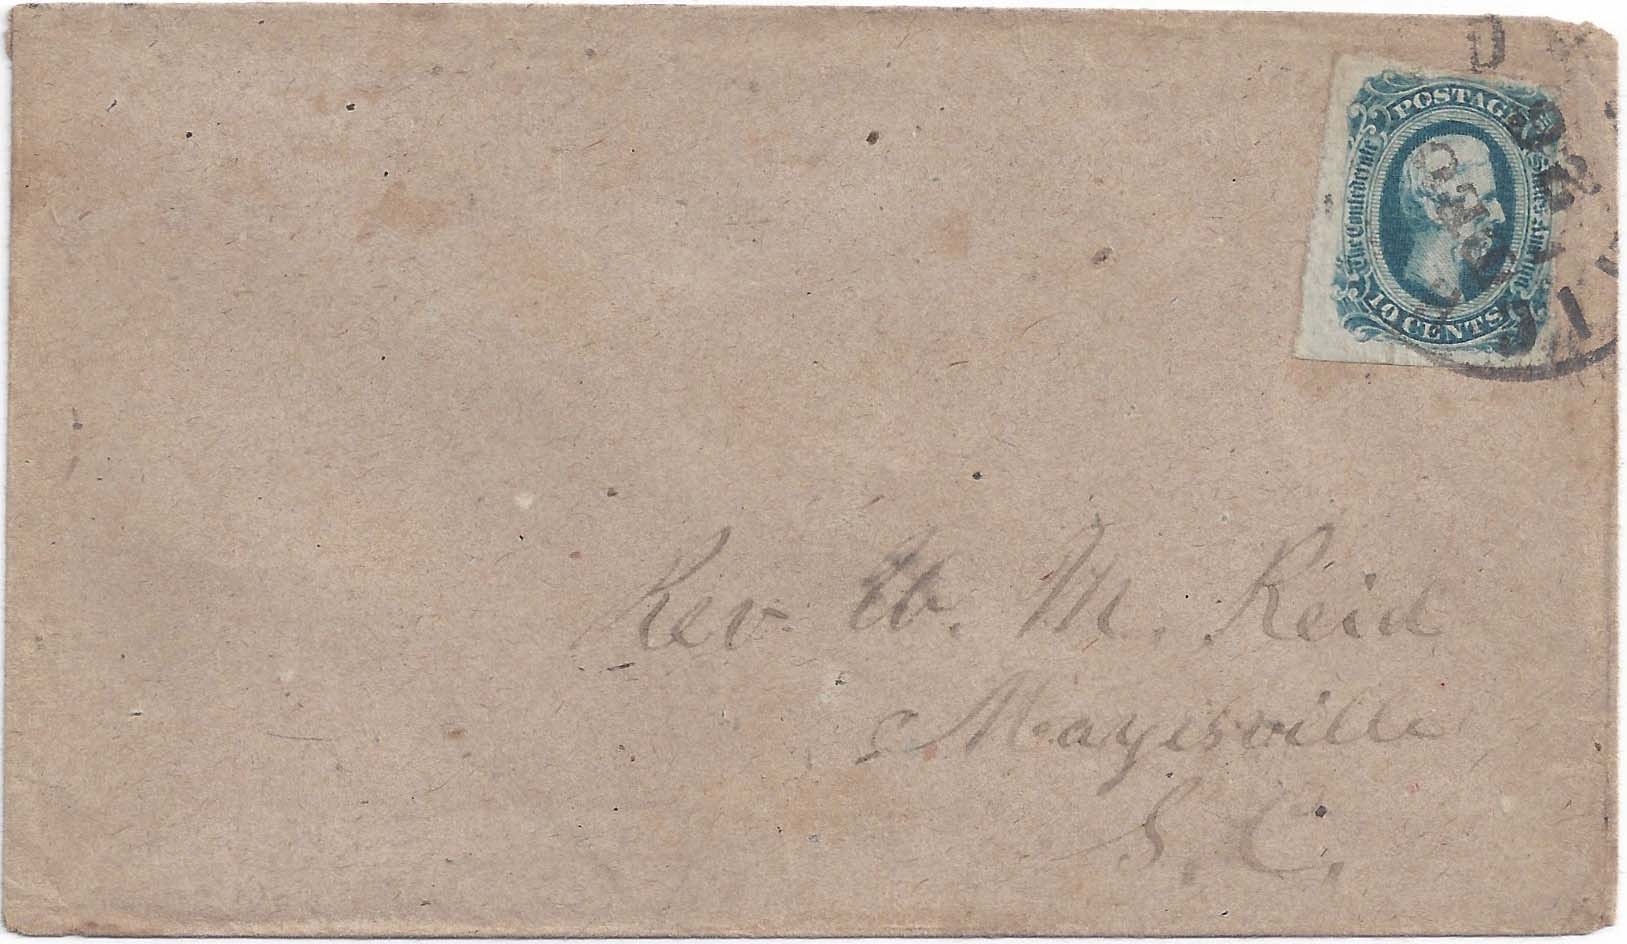 POSTAGE
The Confederate States of America
10 CENTS
Rev. W. M. Reid
Mayesville
S. C.